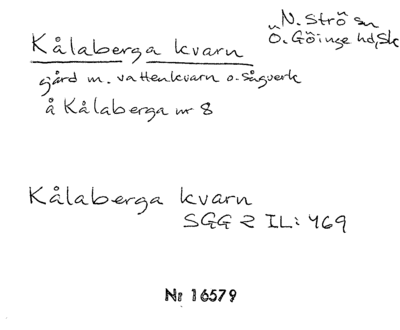 "N. Strö sn
Ö. Göinge hd, Sk
Kålaberga kvarn
gård m. vattenkvarn o. sågverk
å Kålaberga nr 8
Kålaberga kvarn
SGG 2 IL: 469
Nr 16579